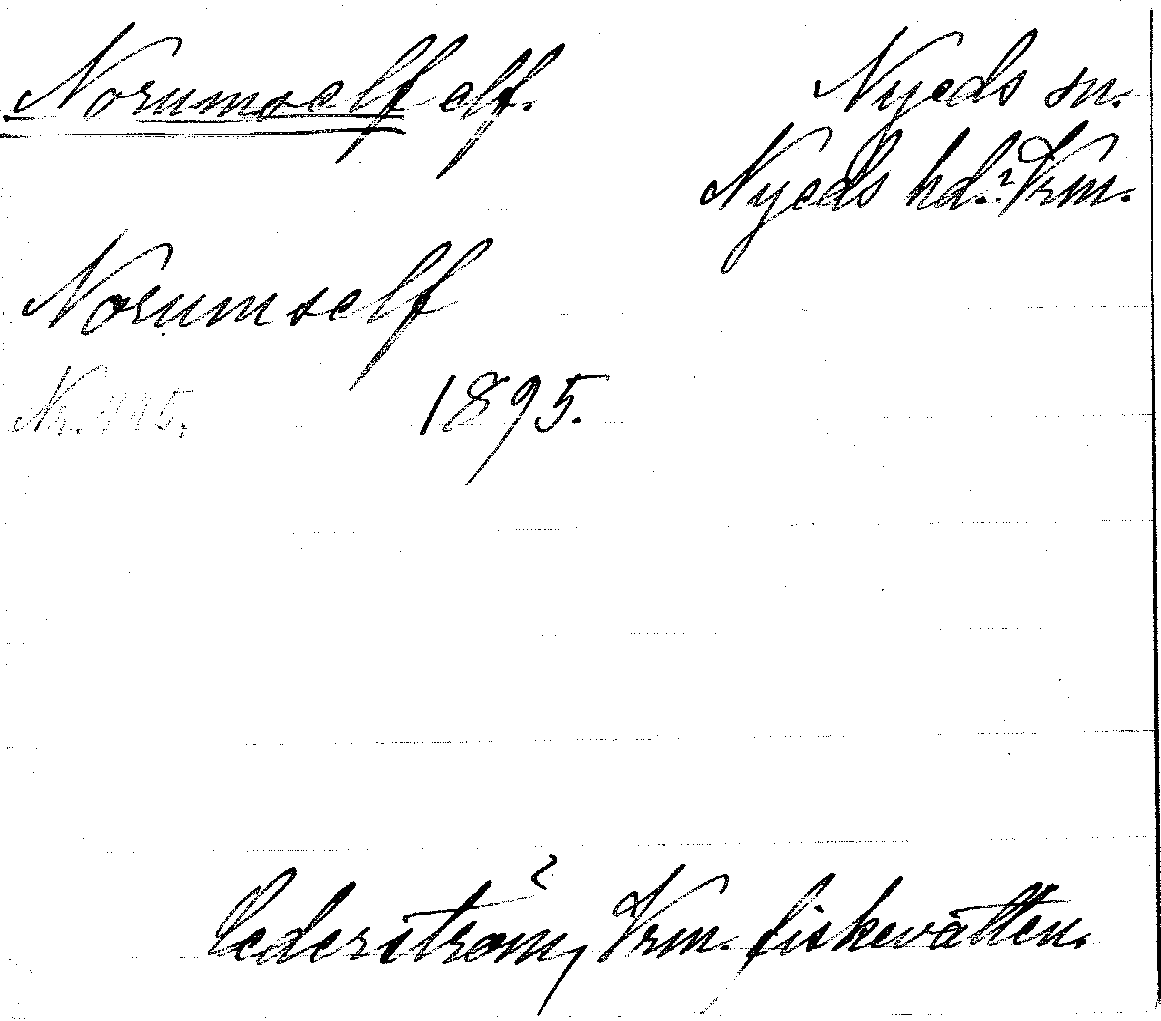 Norumself elf.
Nyeds sn.
Nyeds hd. Vrm.
Norumself
Nr. 445.
1895.
Cederström, Vrm. fiskevatten.